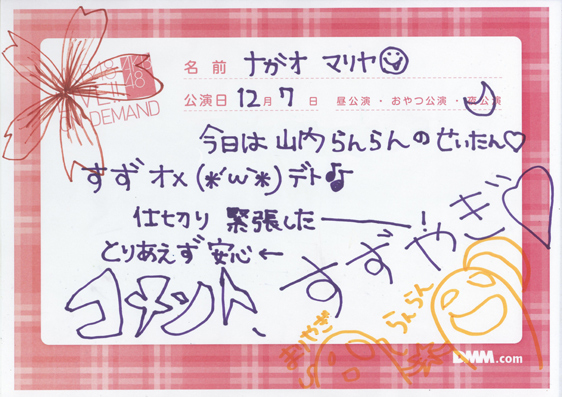 48 48
LIVE!! ON DEMAND
名前 ナガオ マリヤ
公演日 12月 7日 昼公演・おやつ公演・夜公演
今日は 山内らんらんのせいたん♡
すずオメ(*´ω`*)デト♪
仕切り 緊張したーーー!
とりあえず 安心←
すずやぎ♡
コメント、
おやぎ
らんらん
DMM.com